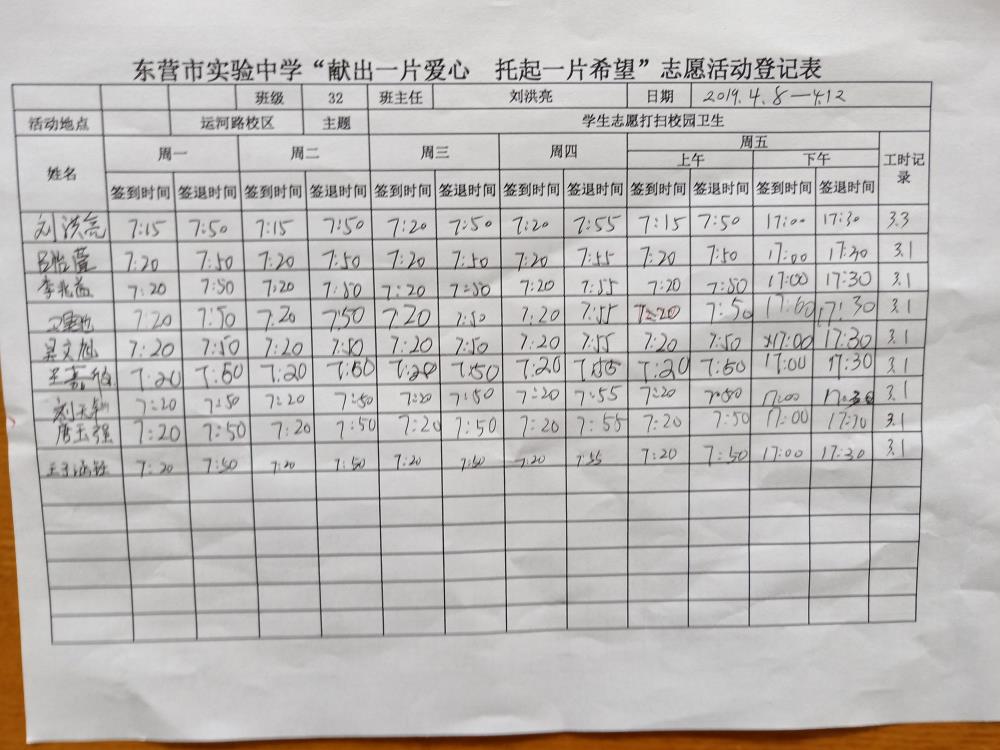 东营市实验中学“献出一片爱心 托起一片希望”志愿活动登记表
班级 32 班主任 刘洪亮 日期 2019.4.8—4.12
活动地点 运河路校区 主题 学生志愿打扫校园卫生
姓名 周一 周二 周三 周四 周五 工时记录
上午 下午
签到时间 签退时间 签到时间 签退时间 签到时间 签退时间 签到时间 签退时间 签到时间 签退时间 签到时间 签退时间
刘洪亮 7:15 7:50 7:15 7:50 7:20 7:50 7:20 7:55 7:15 7:50 17:00 17:30 3.3
吕怡萱 7:20 7:50 7:20 7:50 7:20 7:50 7:20 7:55 7:20 7:50 17:00 17:30 3.1
李兆益 7:20 7:50 7:20 7:50 7:20 7:50 7:20 7:55 7:20 7:50 17:00 17:30 3.1
7:20 7:50 7:20 7:50 7:20 7:50 7:20 7:55 7:20 7:50 17:00 17:30 3.1
吴文旭 7:20 7:50 7:20 7:50 7:20 7:50 7:20 7:55 7:20 7:50 17:00 17:30 3.1
7:20 7:50 7:20 7:50 7:20 7:50 7:20 7:55 7:20 7:50 17:00 17:30 3.1
7:20 7:50 7:20 7:50 7:20 7:50 7:20 7:55 7:20 7:50 17:00 17:30 3.1
唐玉强 7:20 7:50 7:20 7:50 7:20 7:50 7:20 7:55 7:20 7:50 17:00 17:30 3.1
7:20 7:50 7:20 7:50 7:20 7:50 7:20 7:55 7:20 7:50 17:00 17:30 3.1